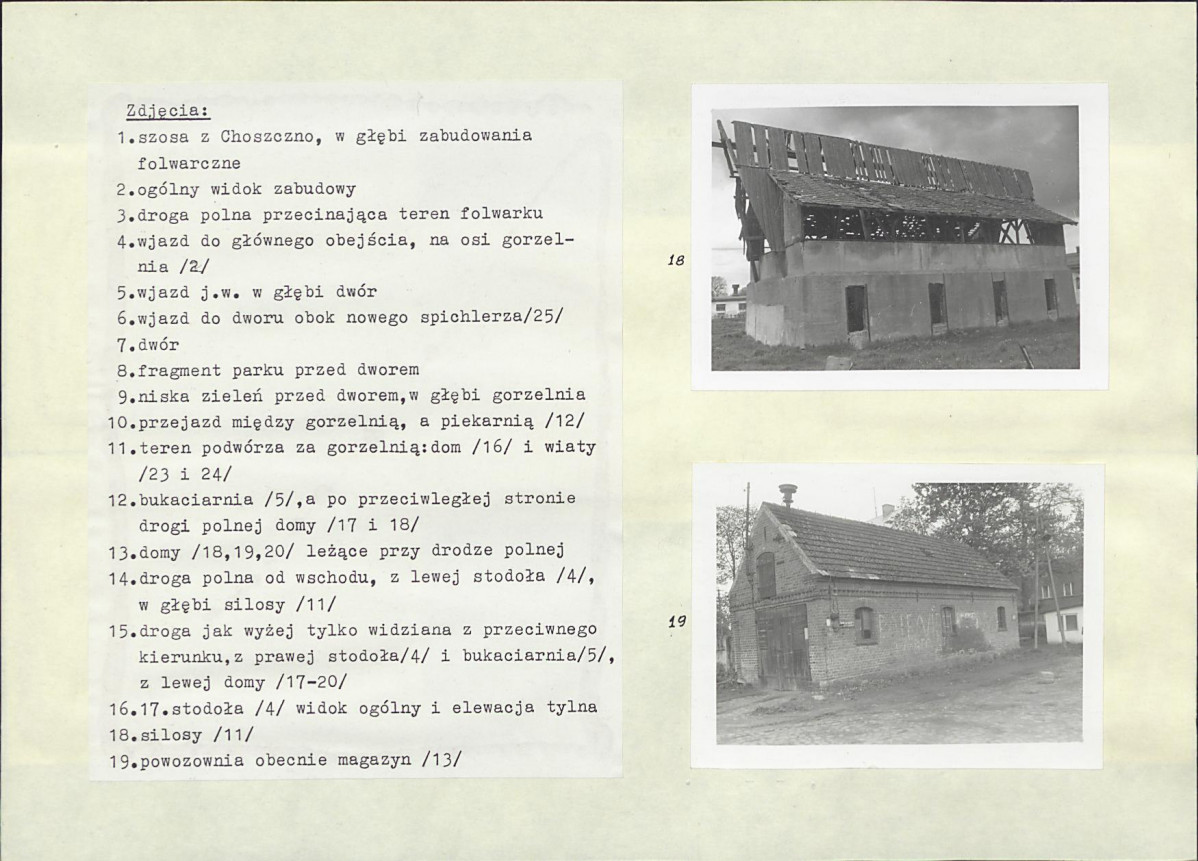 Zdjęcia:
1.szosa z Choszczno, w głębi zabudowania
folwarczne
2.ogólny widok zabudowy
3.droga polna przecinająca teren folwarku
4.wjazd do głównego obejścia, na osi gorzel-
nia /2/
5.wjazd j.w. w głębi dwór
6.wjazd do dworu obok nowego spichlerza/25/
7.dwór
8.fragment parku przed dworem
9.niska zieleń przed dworem,w głębi gorzelnia
10.przejazd między gorzelnią, a piekarnią /12/
11.teren podwórza za gorzelnią:dom /16/ i wiaty
/23 i 24/
12.bukaciarnia /5/,a po przeciwległej stronie
drogi polnej domy /17 i 18/
13.domy /18,19,20/ leżące przy drodze polnej
14.droga polna od wschodu, z lewej stodoła /4/,
w głębi silosy /11/
15.droga jak wyżej tylko widziana z przeciwnego
kierunku,z prawej stodoła/4/ i bukaciarnia/5/,
z lewej domy /17-20/
16.17.stodoła /4/ widok ogólny i elewacja tylna
18.silosy /11/
19.powozownia obecnie magazyn /13/
18
19